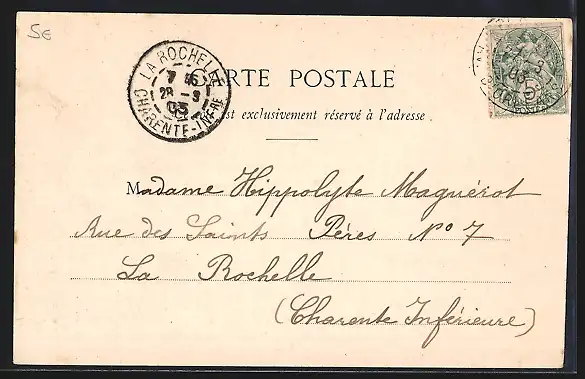 5€
LA ROCHELLE
28 - 3
03
CHARENTE-INFRE
CARTE POSTALE
est exclusivement réservé à l'adresse.
Madame Hippolyte Maguérot
Rue des Saints Pères No 7
La Rochelle
(Charente Inférieure)